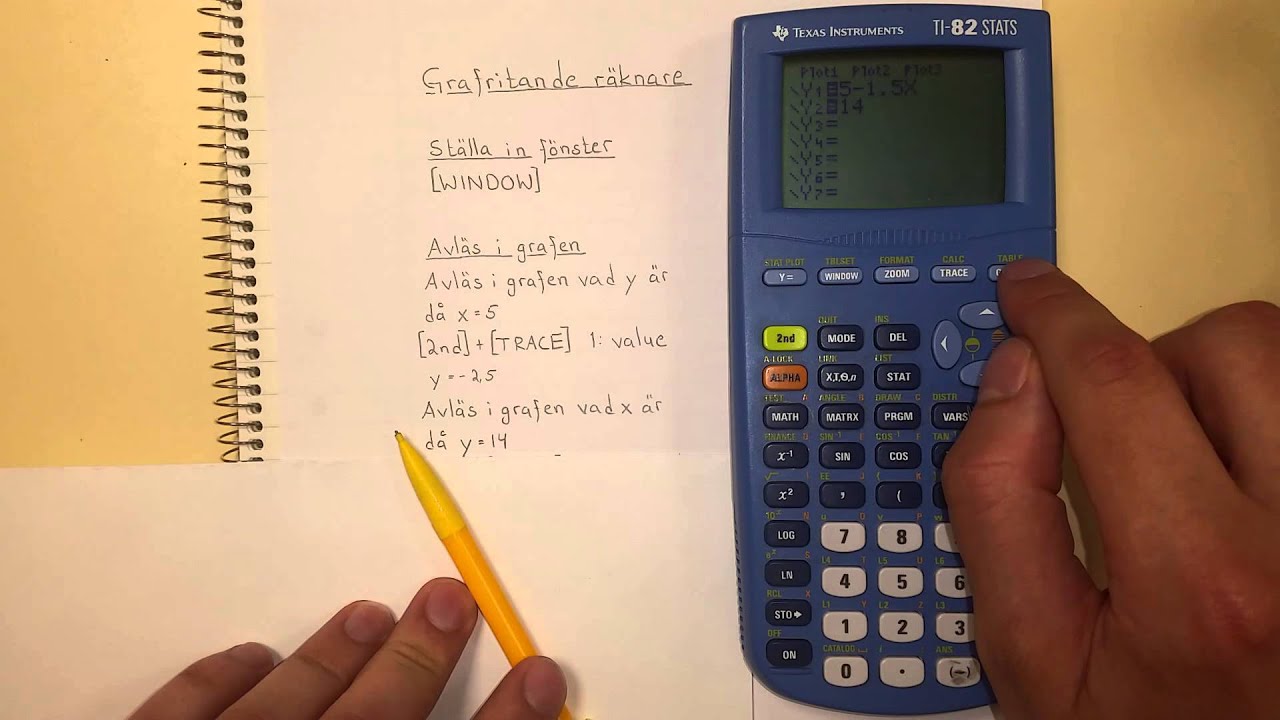 Grafritande räknare
Ställa in fönster
[WINDOW]
Avläs i grafen
Avläs i grafen vad y är
då x = 5
[2nd] + [TRACE] 1: value
y = -2,5
Avläs i grafen vad x är
då y = 14
TEXAS INSTRUMENTS TI-82 STATS
Plot1 Plot2 Plot3
\Y1=5-1.5X
\Y2=14
\Y3=
\Y4=
\Y5=
\Y6=
\Y7=
STAT PLOT TBLSET FORMAT CALC TABLE
Y= WINDOW ZOOM TRACE
QUIT INS
2nd MODE DEL
A-LOCK LINK LIST
ALPHA X,T,Θ,n STAT
TEST A ANGLE B DRAW C DISTR
MATH MATRX PRGM VARS
FINANCE D SIN⁻¹ E COS⁻¹ F TAN
x⁻¹ SIN COS
EE
x² , (
10ˣ N u O v P w
LOG 7 8
eˣ S L4 T L5 U L6
LN 4 5 6
RCL X L1 Y L2 Z L3
STO▸ 1 2 3
OFF CATALOG i ANS
ON 0 . (-)